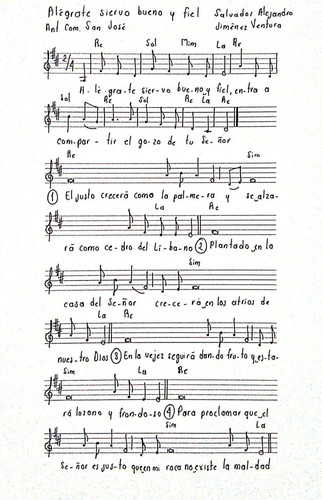 Alégrate siervo bueno y fiel Salvador Alejandro
Ant Com. San José Jiménez Ventura
Re Sol Mim La Re
2/4
A-lé-gra-te sier-vo bue-no y fiel, en-tra a
Sol Re Sol Re La Re
com-par-tir el go-zo de tu Se-ñor
Re Sim
① El justo crecerá como la pal-me-ra y se alza-
La Re
rá como ce-dro del Lí-ba-no ② Plantado en la
Sim
casa del Se-ñor cre-ce-rá en los atrios de
La Re
nues-tro Dios ③ En la vejez seguirá dan-do fru-to y es-ta-
Sim La Re
rá lozano y fron-do-so ④ Para proclamar que el
Sim La
Se-ñor es jus-to que en mi roca no existe la mal-dad